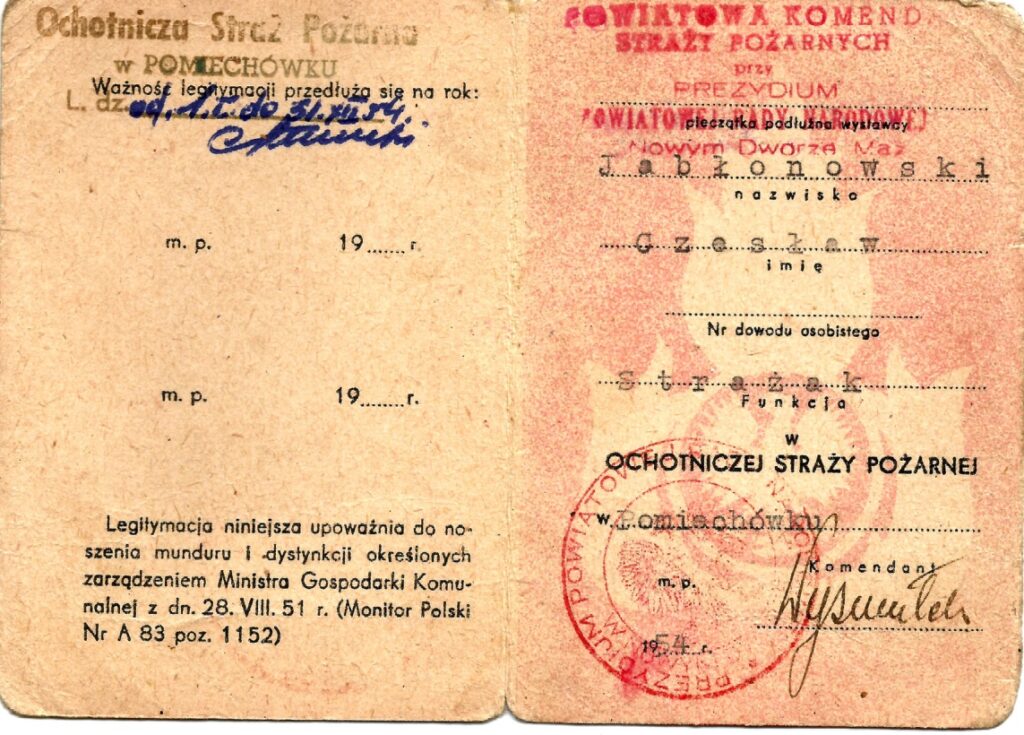 Ochotnicza Straż Pożarna
w POMIECHÓWKU
Ważność legitymacji przedłuża się na rok:
L. dz.
od 1.I. do 31.XII 54.
m. p. 19......r.
m. p. 19.......r.
Legitymacja niniejsza upoważnia do no-
szenia munduru i dystynkcji określonych
zarządzeniem Ministra Gospodarki Komu-
nalnej z dn. 28. VIII. 51 r. (Monitor Polski
Nr A 83 poz. 1152)
POWIATOWA KOMENDA
STRAŻY POŻARNYCH
przy
PREZYDIUM
POWIATOWEJ RADY NARODOWEJ
pieczątka podłużna wystawcy
Nowym Dworze Maz
Jabłonowski
nazwisko
Czesław
imię
Nr dowodu osobistego
Strażak
Funkcja
w
OCHOTNICZEJ STRAŻY POŻARNEJ
w Pomiechówku
Komendant
m. p.
1954 r.
PREZYDIUM POWIATOWEJ